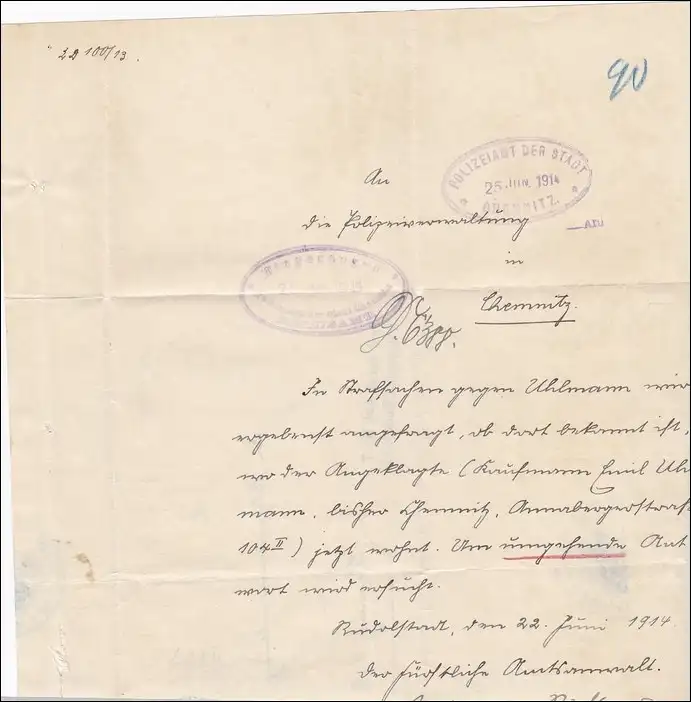 100/13.
90
POLIZEIAMT DER STADT
25. JUN. 1914
CHEMNITZ.
An
die Polizeiverwaltung
in
Chemnitz.
In Strafsachen gegen Uhlmann wird
ergebenst angefragt, ob dort bekannt ist,
wo der Angeklagte (Kaufmann Emil Uhl
mann, bisher Chemnitz, Annabergerstraße
104 II) jetzt wohnt. Um umgehende Ant
wort wird ersucht.
Rudolstadt, den 22. Juni 1914.
Der Fürstliche Amtsanwalt.